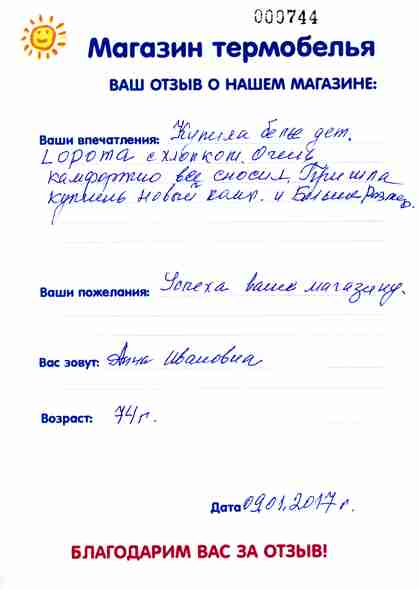 000744
Магазин термобелья
ВАШ ОТЗЫВ О НАШЕМ МАГАЗИНЕ:
Ваши впечатления: Купила белье дет.
LOPOMA с хлопком. Очень
камфортно все сносил. Пришла
купить новый комп. и Больше Размер.
Ваши пожелания: Успеха вашему магазину.
Вас зовут: Анна Ивановна
Возраст: 74 г.
Дата 09.01.2017 г.
БЛАГОДАРИМ ВАС ЗА ОТЗЫВ!